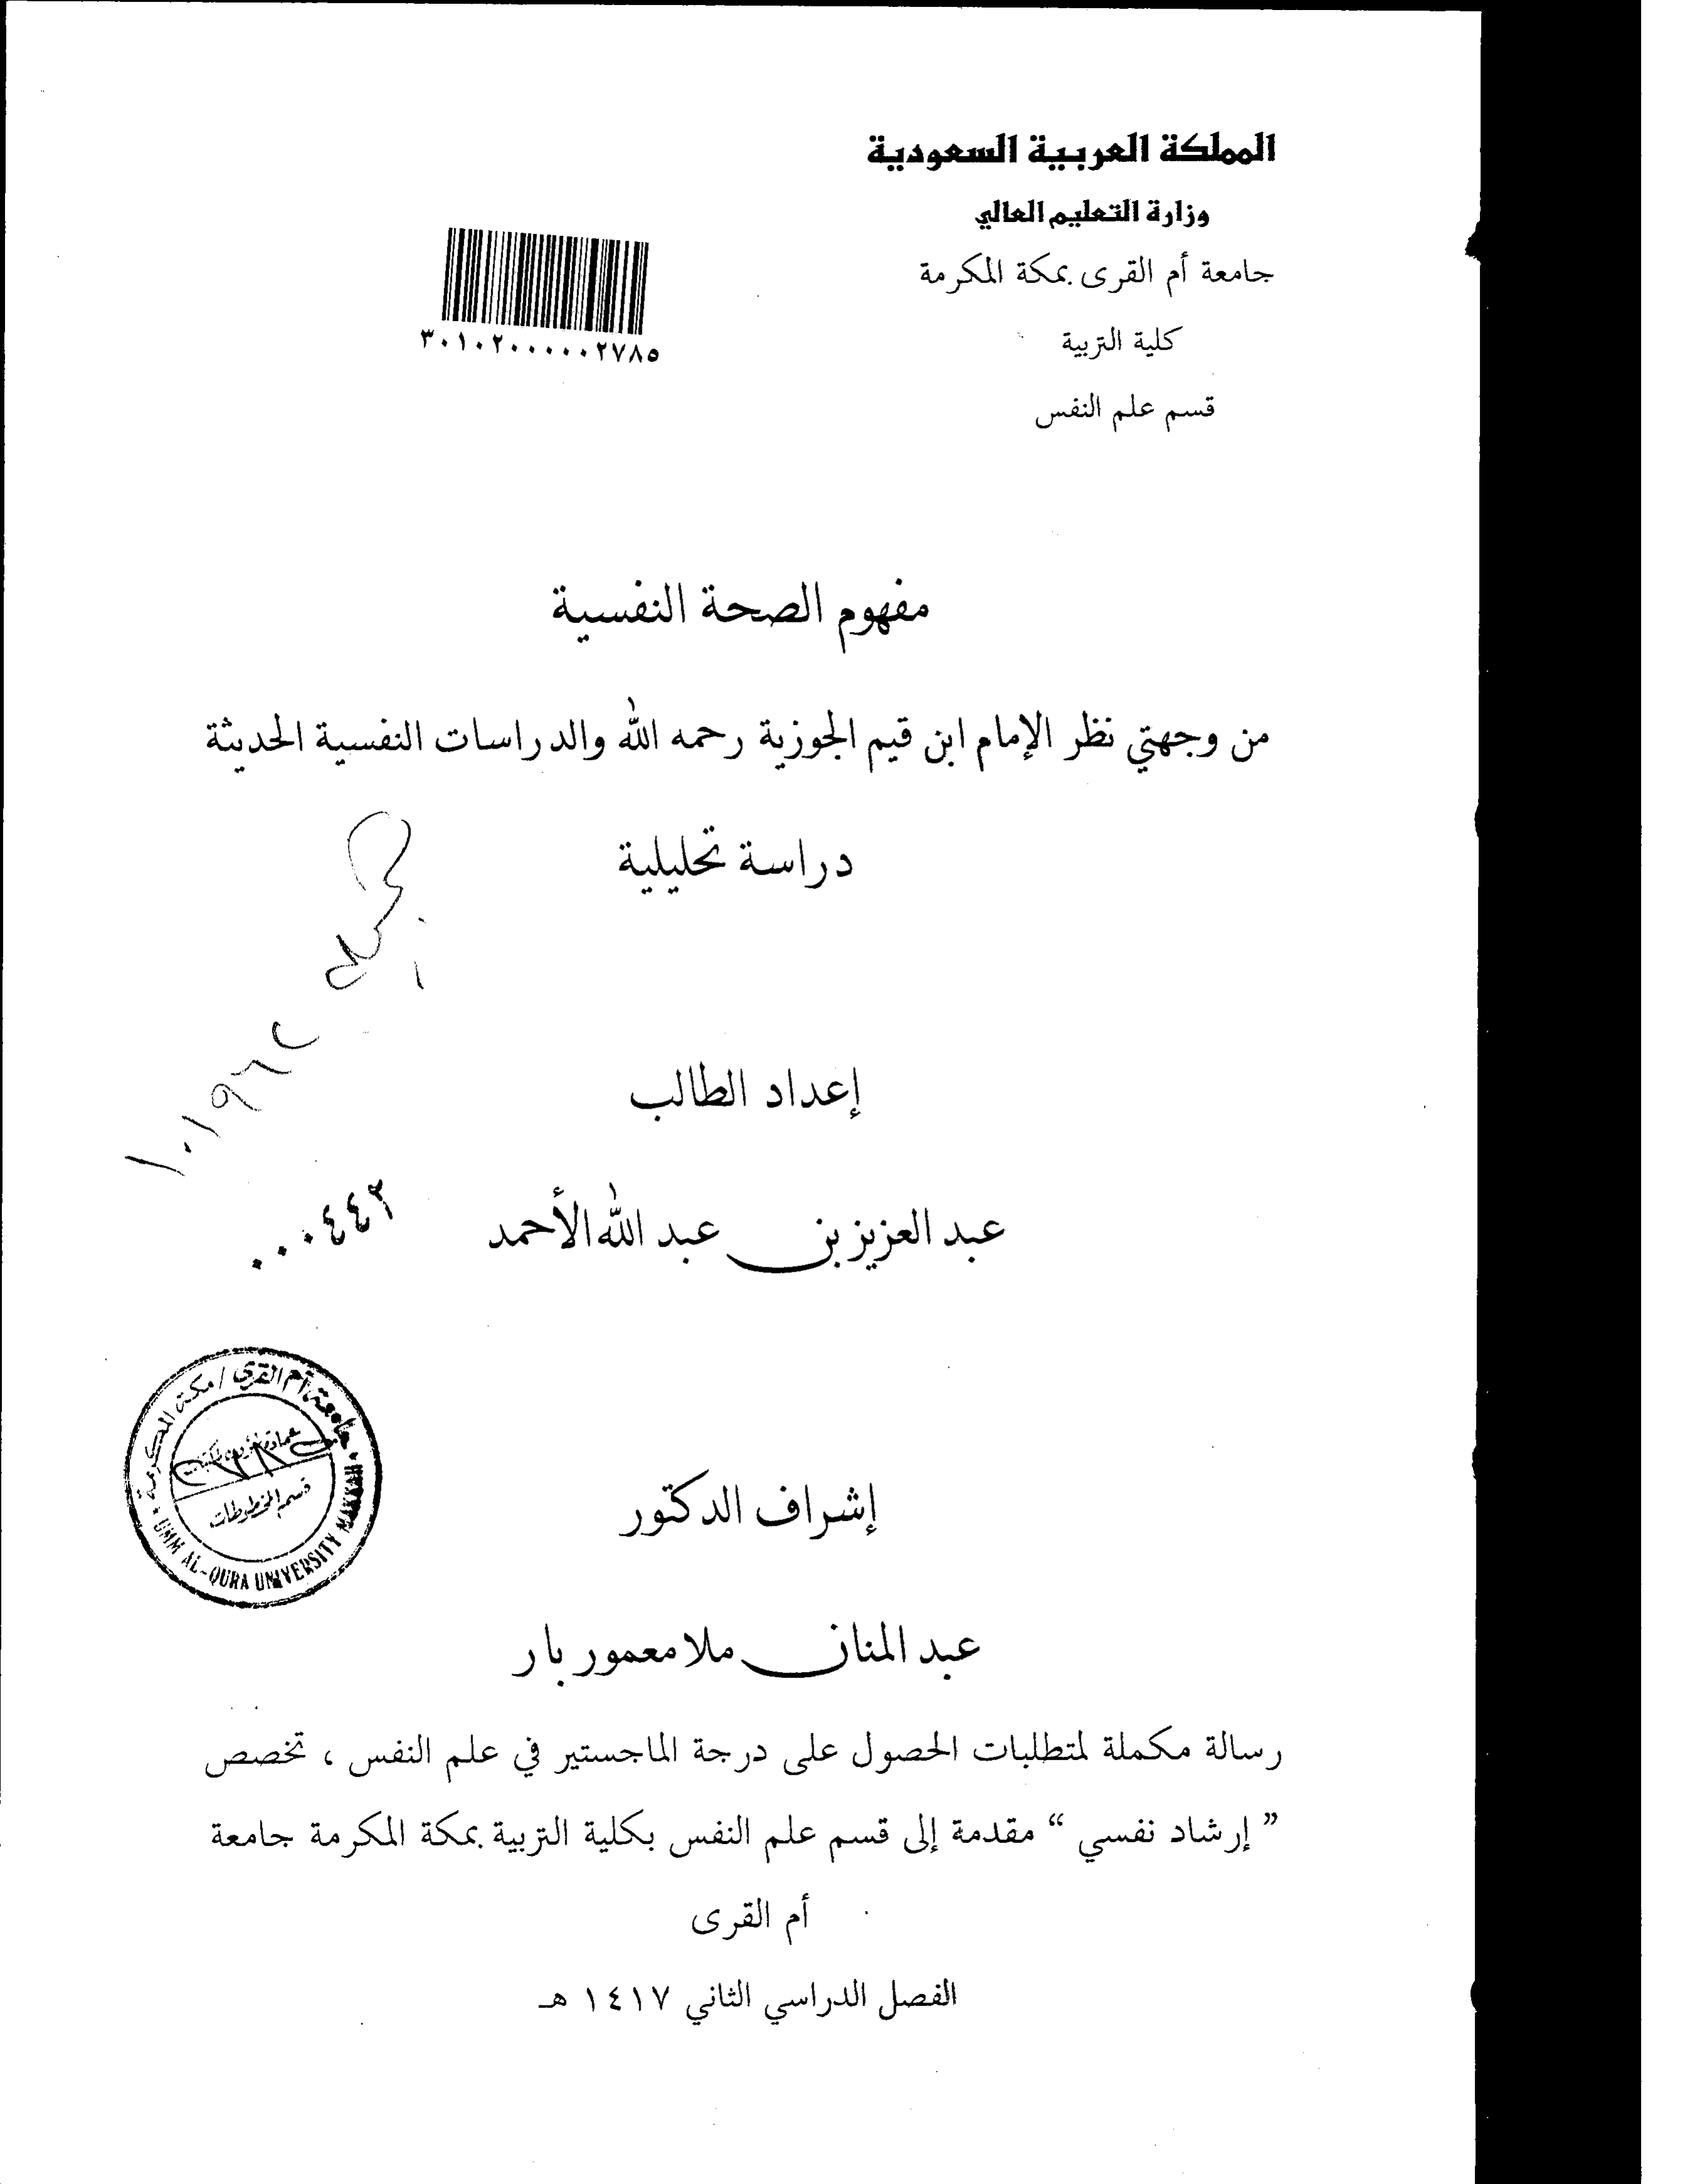 المملكة العربية السعودية
وزارة التعليم العالي
جامعة أم القرى بمكة المكرمة
كلية التربية
قسم علم النفس
٣٠١٠٢٠٠٠٠٠٢٧٨٥
مفهوم الصحة النفسية
من وجهتي نظر الإمام ابن قيم الجوزية رحمه الله والدراسات النفسية الحديثة
دراسة تحليلية
١٠١٩٦٢
إعداد الطالب
عبد العزيز بن عبد الله الأحمد
٠٠٠٤٤٢
جامعة أم القرى / مكة المكرمة
قسم المخطوطات
UMM AL-QURA UNIVERSITY MAKKAH
إشراف الدكتور
عبد المنان ملا معمور بار
رسالة مكملة لمتطلبات الحصول على درجة الماجستير في علم النفس ، تخصص
” إرشاد نفسي “ مقدمة إلى قسم علم النفس بكلية التربية بمكة المكرمة جامعة
أم القرى
الفصل الدراسي الثاني ١٤١٧ هـ